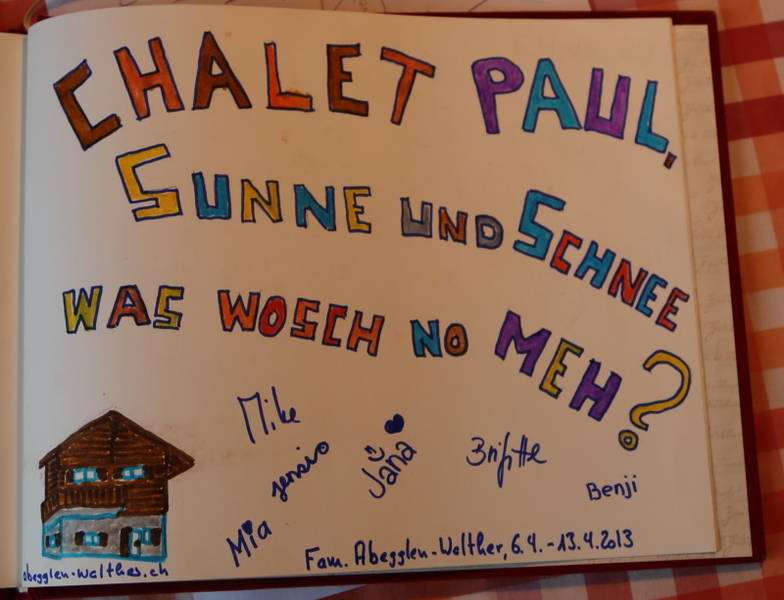 CHALET PAUL,
SUNNE UND SCHNEE
WAS WOSCH NO MEH?
Mike
Jana
Brigitte
Benji
Mia
Fam. Abegglen-Walther, 6.4.-13.4.2013
abegglen-walther.ch